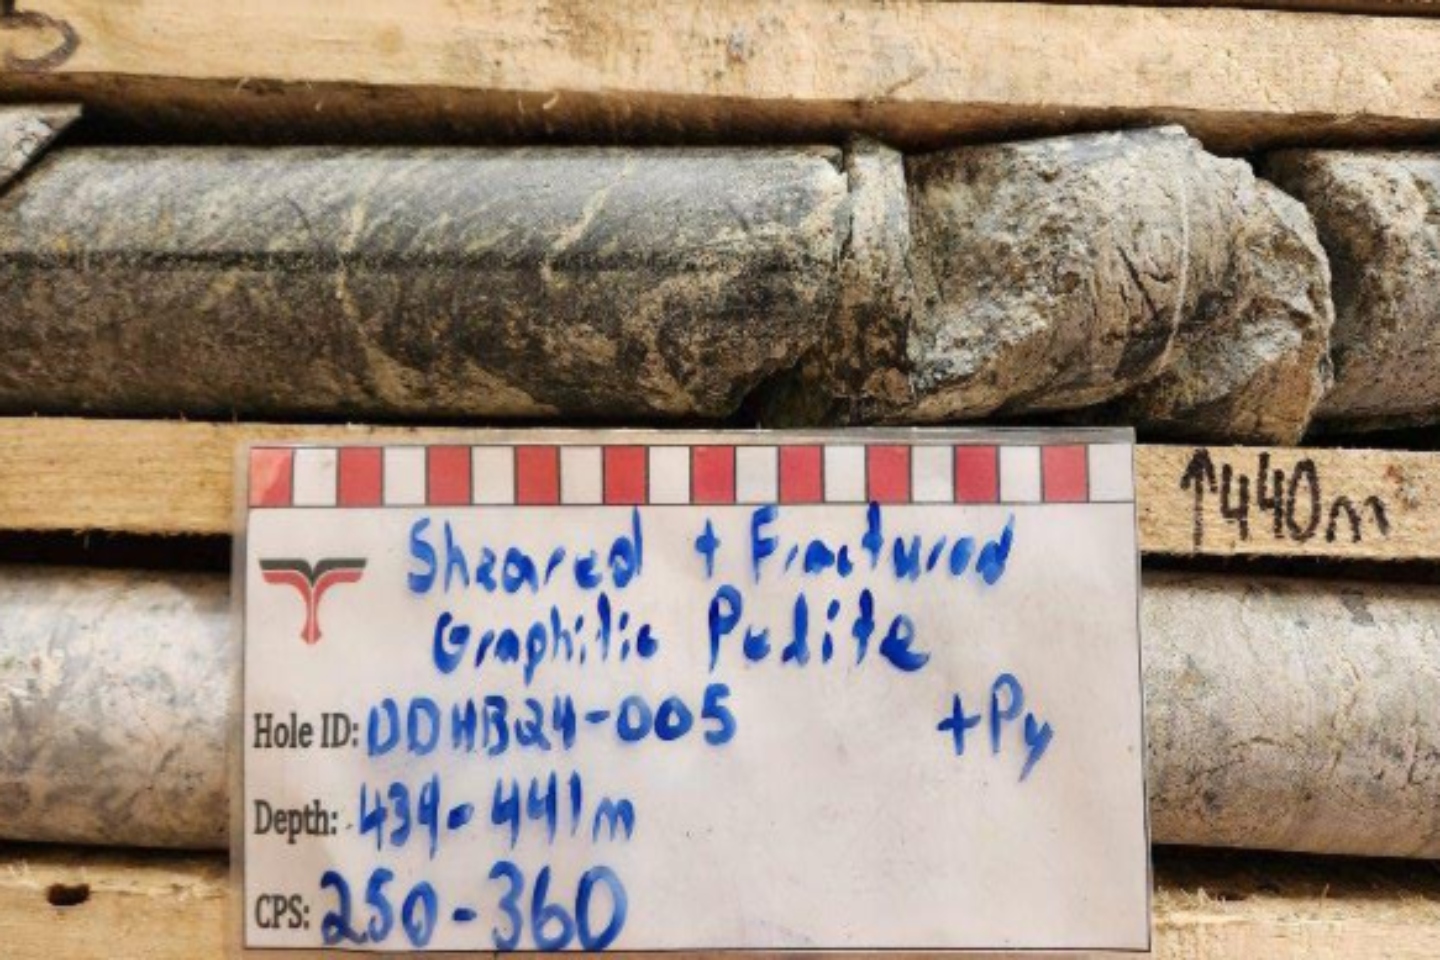 ↑440m
Sheared + Fractured
Graphitic Pelite
+Py
Hole ID: DDHB24-005
Depth: 439-441m
CPS: 250-360